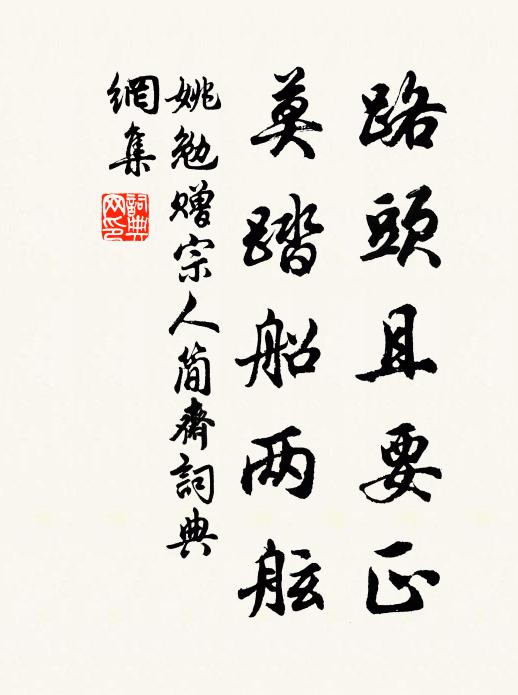 路頭且要正
莫踏船两舷
姚勉赠宗人简齋詞典
網集
詞典
网印